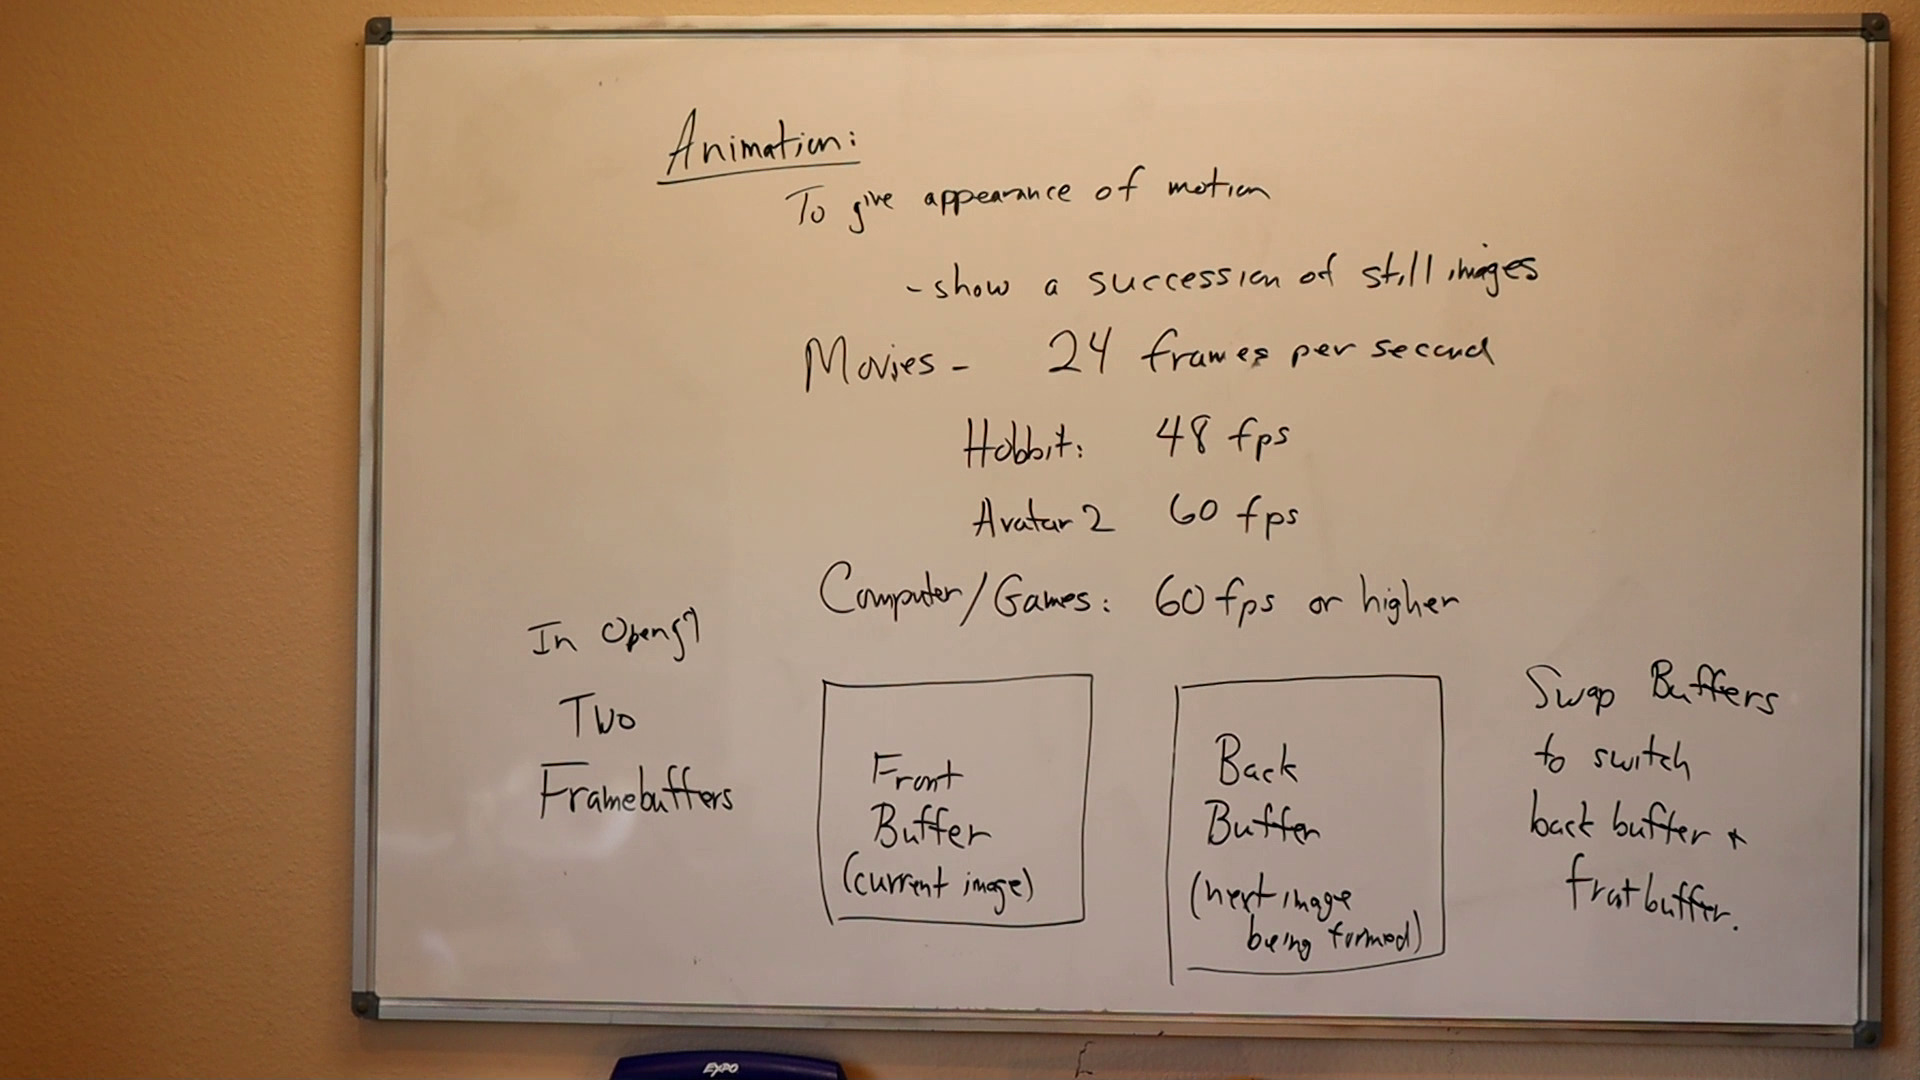 Animation:
To give appearance of motion
- show a succession of still images
Movies - 24 frames per second
Hobbit: 48 fps
Avatar 2 60 fps
Computer/Games: 60 fps or higher
In Opengl
Two
Framebuffers
Front
Buffer
(current image)
Back
Buffer
(next image
being formed)
Swap Buffers
to switch
back buffer +
front buffer.
EXPO